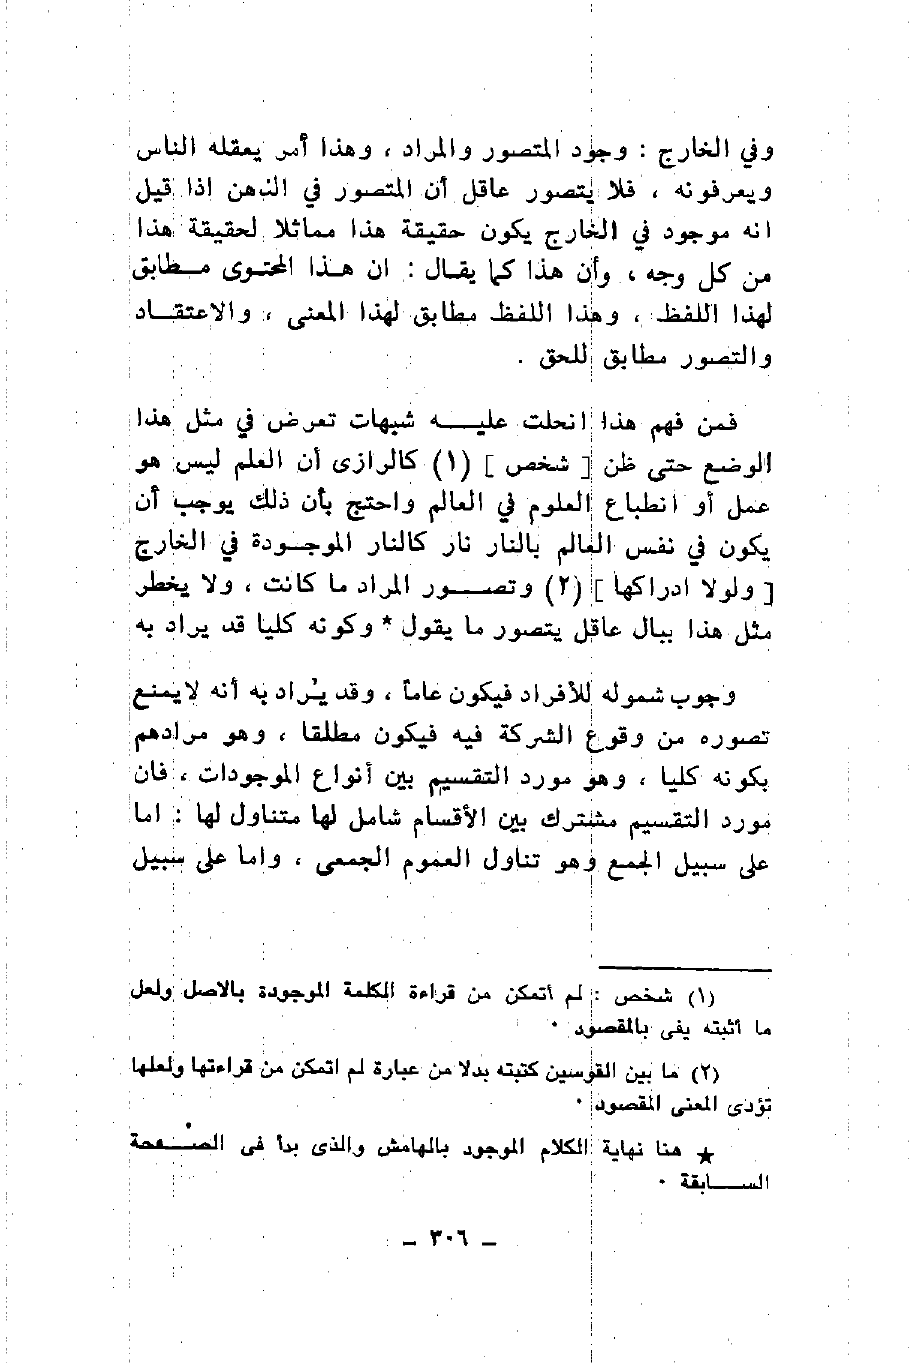 وفي الخارج : وجود المتصور والمراد ، وهذا أمر يعقله الناس
ويعرفونه ، فلا يتصور عاقل أن المتصور في الذهن اذا قيل
انه موجود في الخارج يكون حقيقة هذا مماثلا لحقيقة هذا
من كل وجه ، وأن هذا كما يقال : ان هذا المحتوى مطابق
لهذا اللفظ ، وهذا اللفظ مطابق لهذا المعنى ، والاعتقاد
والتصور مطابق للحق .
فمن فهم هذا انحلت عليه شبهات تعرض في مثل هذا
الوضع حتى ظن [ شخص ] (١) كالرازى أن العلم ليس هو
عمل أو انطباع العلوم في العالم واحتج بأن ذلك يوجب أن
يكون في نفس العالم بالنار نار كالنار الموجودة في الخارج
[ ولولا ادراكها ] (٢) وتصور المراد ما كانت ، ولا يخطر
مثل هذا ببال عاقل يتصور ما يقول * وكونه كليا قد يراد به
وجوب شموله للأفراد فيكون عاماً ، وقد يُراد به أنه لايمنع
تصوره من وقوع الشركة فيه فيكون مطلقا ، وهو مرادهم
بكونه كليا ، وهو مورد التقسيم بين أنواع الموجودات ، فان
مورد التقسيم مشترك بين الأقسام شامل لها متناول لها : اما
على سبيل الجمع وهو تناول العموم الجمعى ، واما على سبيل
(١) شخص : لم أتمكن من قراءة الكلمة الموجودة بالاصل ولعل
ما أثبته يفى بالمقصود ٠
(٢) ما بين القوسين كتبته بدلا من عبارة لم اتمكن من قراءتها ولعلها
تؤدى المعنى المقصود ٠
★ هنا نهاية الكلام الموجود بالهامش والذى بدأ فى الصفحة
السابقة ٠
ـ ٣٠٦ ـ